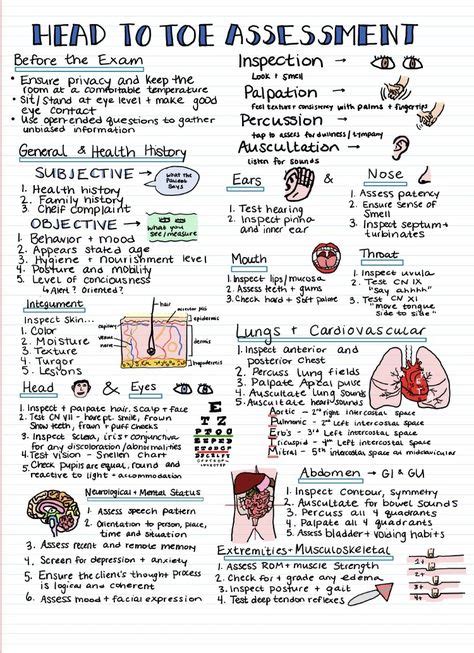 HEAD TO TOE ASSESSMENT
Before the Exam
• Ensure privacy and keep the
room at a comfortable temperature
• Sit/Stand at eye level + make good
eye contact
• Use open-ended questions to gather
unbiased information
Inspection →
Look + smell
Palpation →
feel texture + consistency with palms + fingertips
Percussion →
tap to assess for dullness / tympany
Auscultation →
listen for sounds
General & Health History
SUBJECTIVE →
what the
patient
says
1. Health history
2. Family history
3. Cheif complaint
OBJECTIVE →
what you
see/measure
1. Behavior + mood
2. Appears stated age
3. Hygiene + nourishment level
4. Posture and mobility
5. Level of conciousness
↳ Alert? Oriented?
Ears
&
Nose
1. Test hearing
2. Inspect pinna
and inner ear
1. Assess patency
2. Ensure sense of
smell
3. Inspect septum +
turbinates
Mouth
1. Inspect lips/mucosa
2. Assess teeth + gums
3. Check hard + soft palate
Throat
1. Inspect uvula
2. Test CN IX
"say ahhhh"
3. Test CN XI
"move tongue
side to side"
Integument
Inspect skin...
1. Color
2. Moisture
3. Texture
4. Turgor
5. Lesions
hair
epidermis
capillary
vein
nerve
dermis
hypodermis
Lungs + Cardiovascular
1. Inspect anterior and
posterior chest
2. Percuss lung fields
3. Palpate Apical pulse
4. Auscultate lung sounds
5. Auscultate heart sounds
Aortic - 2nd right intercostal space
Pulmonic - 2nd Left intercostal space
Erb's - 3rd Left intercostal space
Tricuspid - 4th Left intercostal space
Mitral - 5th intercostal space at midclavicular
Head
&
Eyes
1. Inspect + palpate hair, scalp + face
2. Test CN VII - have pt. smile, frown
show teeth, frown + puff cheeks
3. Inspect sclera, iris + conjunctiva
for any discoloration/abnormalities
4. Test vision - Snellen Chart
5. Check pupils are equal, round and
reactive to light + accommodation
E
T Z
Neurological + Mental Status
1. Assess speech pattern
2. Orientation to person, place,
time and situation
3. Assess recent and remote memory
4. Screen for depression + anxiety
5. Ensure the client's thought process
is logical and coherent
6. Assess mood + facial expression
Abdomen → GI & GU
1. Inspect contour, symmetry
2. Auscultate for bowel sounds
3. Percuss all 4 quadrants
4. Palpate all 4 quadrants
5. Assess bladder + voiding habits
Extremities + Musculoskeletal
1. Assess ROM + muscle strength
2. Check for + grade any edema
3. Inspect posture + gait
4. Test deep tendon reflexes
1+
2+
3+
4+